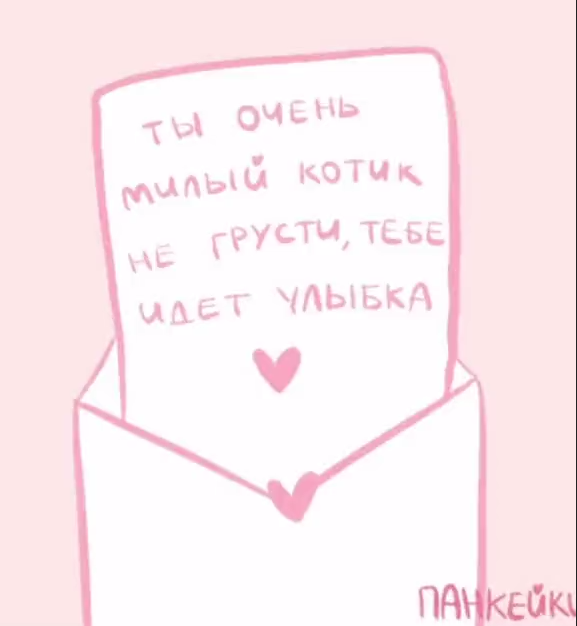 ТЫ ОЧЕНЬ
МИЛЫЙ КОТИК
НЕ ГРУСТИ, ТЕБЕ
ИДЕТ УЛЫБКА
ПАНКЕЙКИ